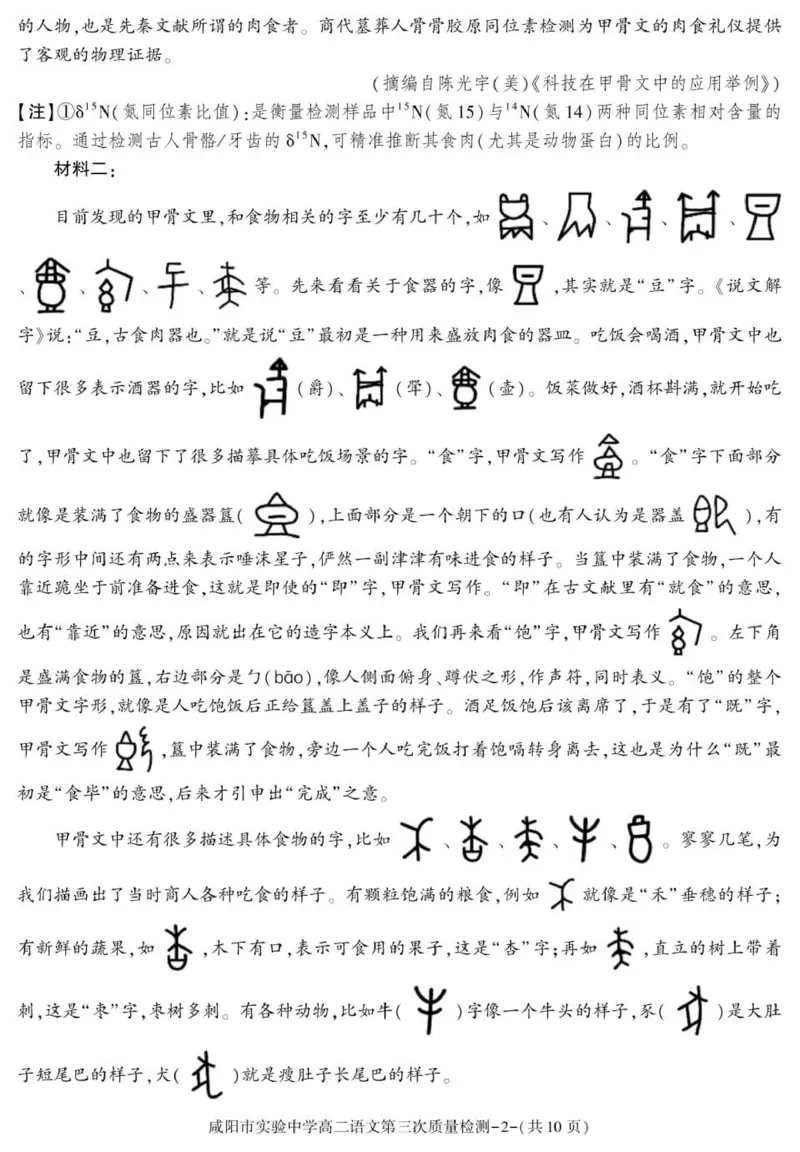 的人物,也是先秦文献所谓的肉食者。商代墓葬人骨骨胶原同位素检测为甲骨文的肉食礼仪提供
了客观的物理证据。
(摘编自陈光宇(美)《科技在甲骨文中的应用举例》)
【注】①δ¹⁵N(氮同位素比值):是衡量检测样品中¹⁵N(氮15)与¹⁴N(氮14)两种同位素相对含量的
指标。通过检测古人骨骼/牙齿的δ¹⁵N,可精准推断其食肉(尤其是动物蛋白)的比例。
材料二:
目前发现的甲骨文里,和食物相关的字至少有几十个,如、、、、
、、、、等。先来看看关于食器的字,像,其实就是“豆”字。《说文解
字》说:“豆,古食肉器也。”就是说“豆”最初是一种用来盛放肉食的器皿。吃饭会喝酒,甲骨文中也
留下很多表示酒器的字,比如(爵)、(斝)、(壶)。饭菜做好,酒杯斟满,就开始吃
了,甲骨文中也留下了很多描摹具体吃饭场景的字。“食”字,甲骨文写作。“食”字下面部分
就像是装满了食物的盛器簋(),上面部分是一个朝下的口(也有人认为是器盖),有
的字形中间还有两点来表示唾沫星子,俨然一副津津有味进食的样子。当簋中装满了食物,一个人
靠近跪坐于前准备进食,这就是即使的“即”字,甲骨文写作。“即”在古文献里有“就食”的意思,
也有“靠近”的意思,原因就出在它的造字本义上。我们再来看“饱”字,甲骨文写作。左下角
是盛满食物的簋,右边部分是勹(bāo),像人侧面俯身、蹲伏之形,作声符,同时表义。“饱”的整个
甲骨文字形,就像是人吃饱饭后正给簋盖上盖子的样子。酒足饭饱后该离席了,于是有了“既”字,
甲骨文写作,簋中装满了食物,旁边一个人吃完饭打着饱嗝转身离去,这也是为什么“既”最
初是“食毕”的意思,后来才引申出“完成”之意。
甲骨文中还有很多描述具体食物的字,比如、、、、。寥寥几笔,为
我们描画出了当时商人各种吃食的样子。有颗粒饱满的粮食,例如就像是“禾”垂穗的样子;
有新鲜的蔬果,如,木下有口,表示可食用的果子,这是“杏”字;再如,直立的树上带着
刺,这是“枣”字,枣树多刺。有各种动物,比如牛()字像一个牛头的样子,豕()是大肚
子短尾巴的样子,犬()就是瘦肚子长尾巴的样子。
咸阳市实验中学高二语文第三次质量检测-2-(共10页)